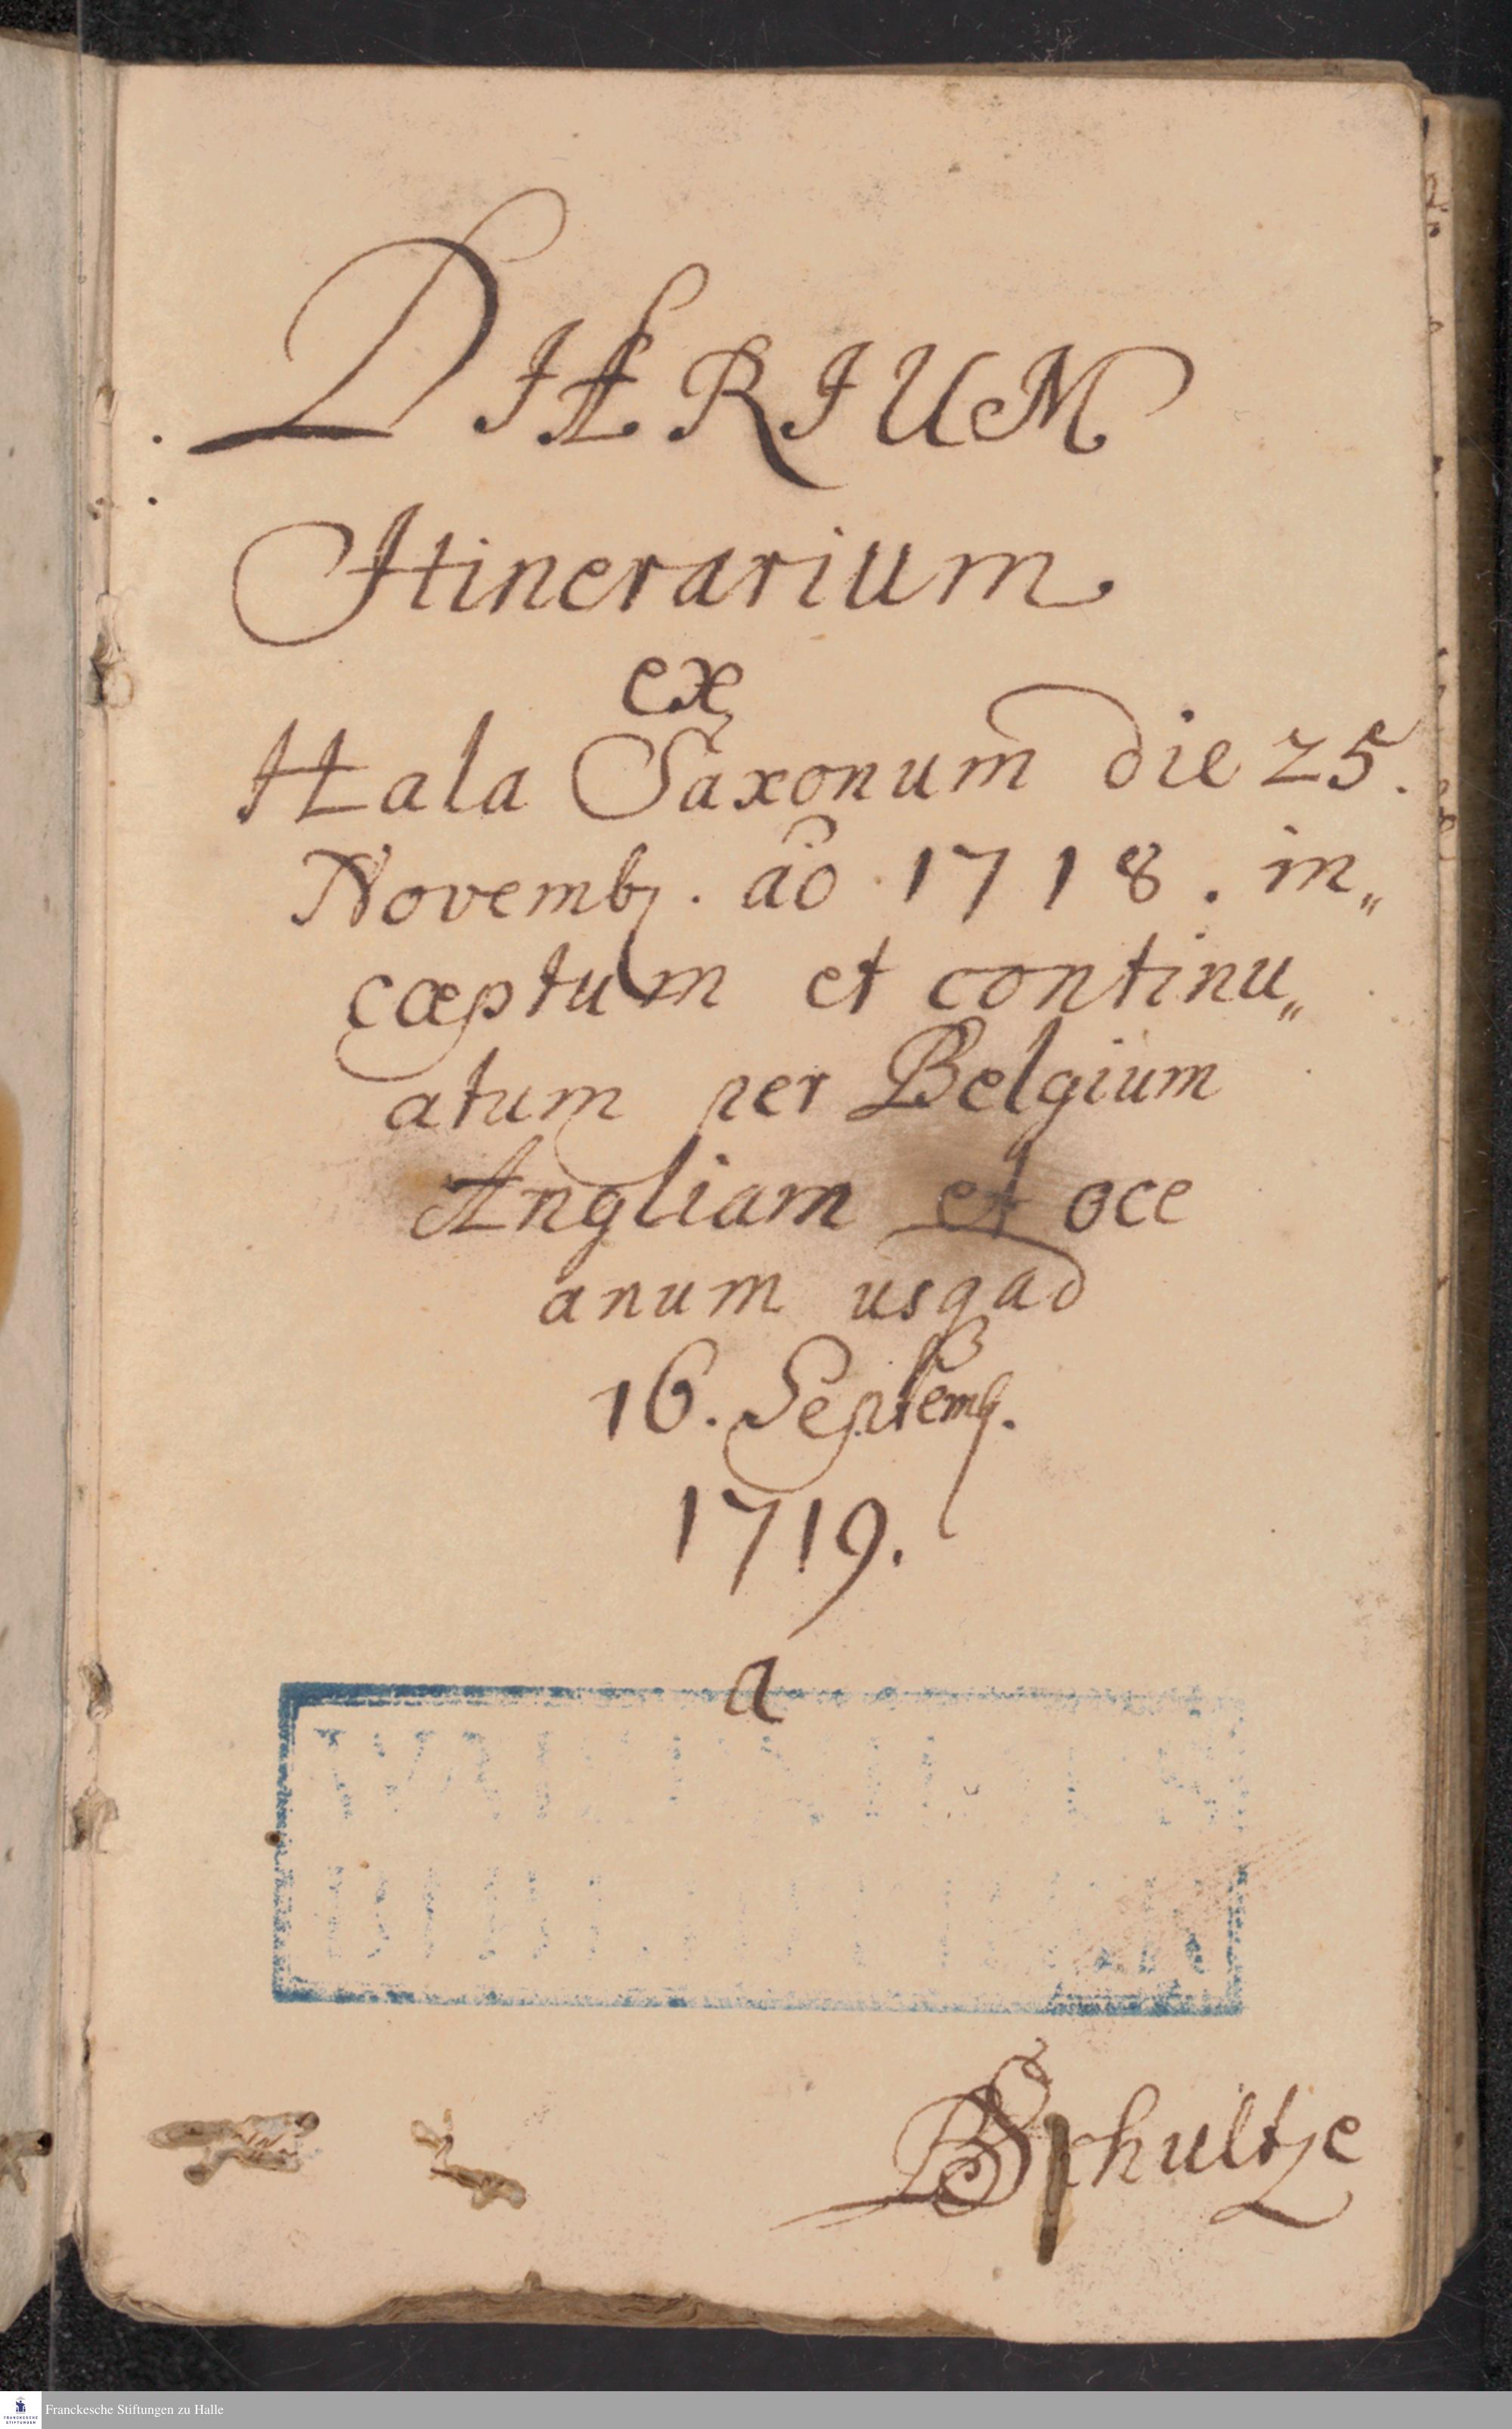 DIÆRIUM
Itinerarium
ex
Hala Saxonum die 25.
Novembr. ao 1718. in„
cœptum et continu„
atum per Belgium
Angliam et oce
anum usq ad
16. Septembr.
1719.
a
BSchultze
Franckesche Stiftungen zu Halle
FRANCKESCHE
STIFTUNGEN